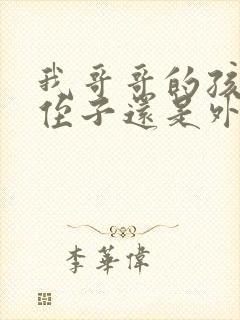 我哥哥的孩
侄子還是外
李華偉